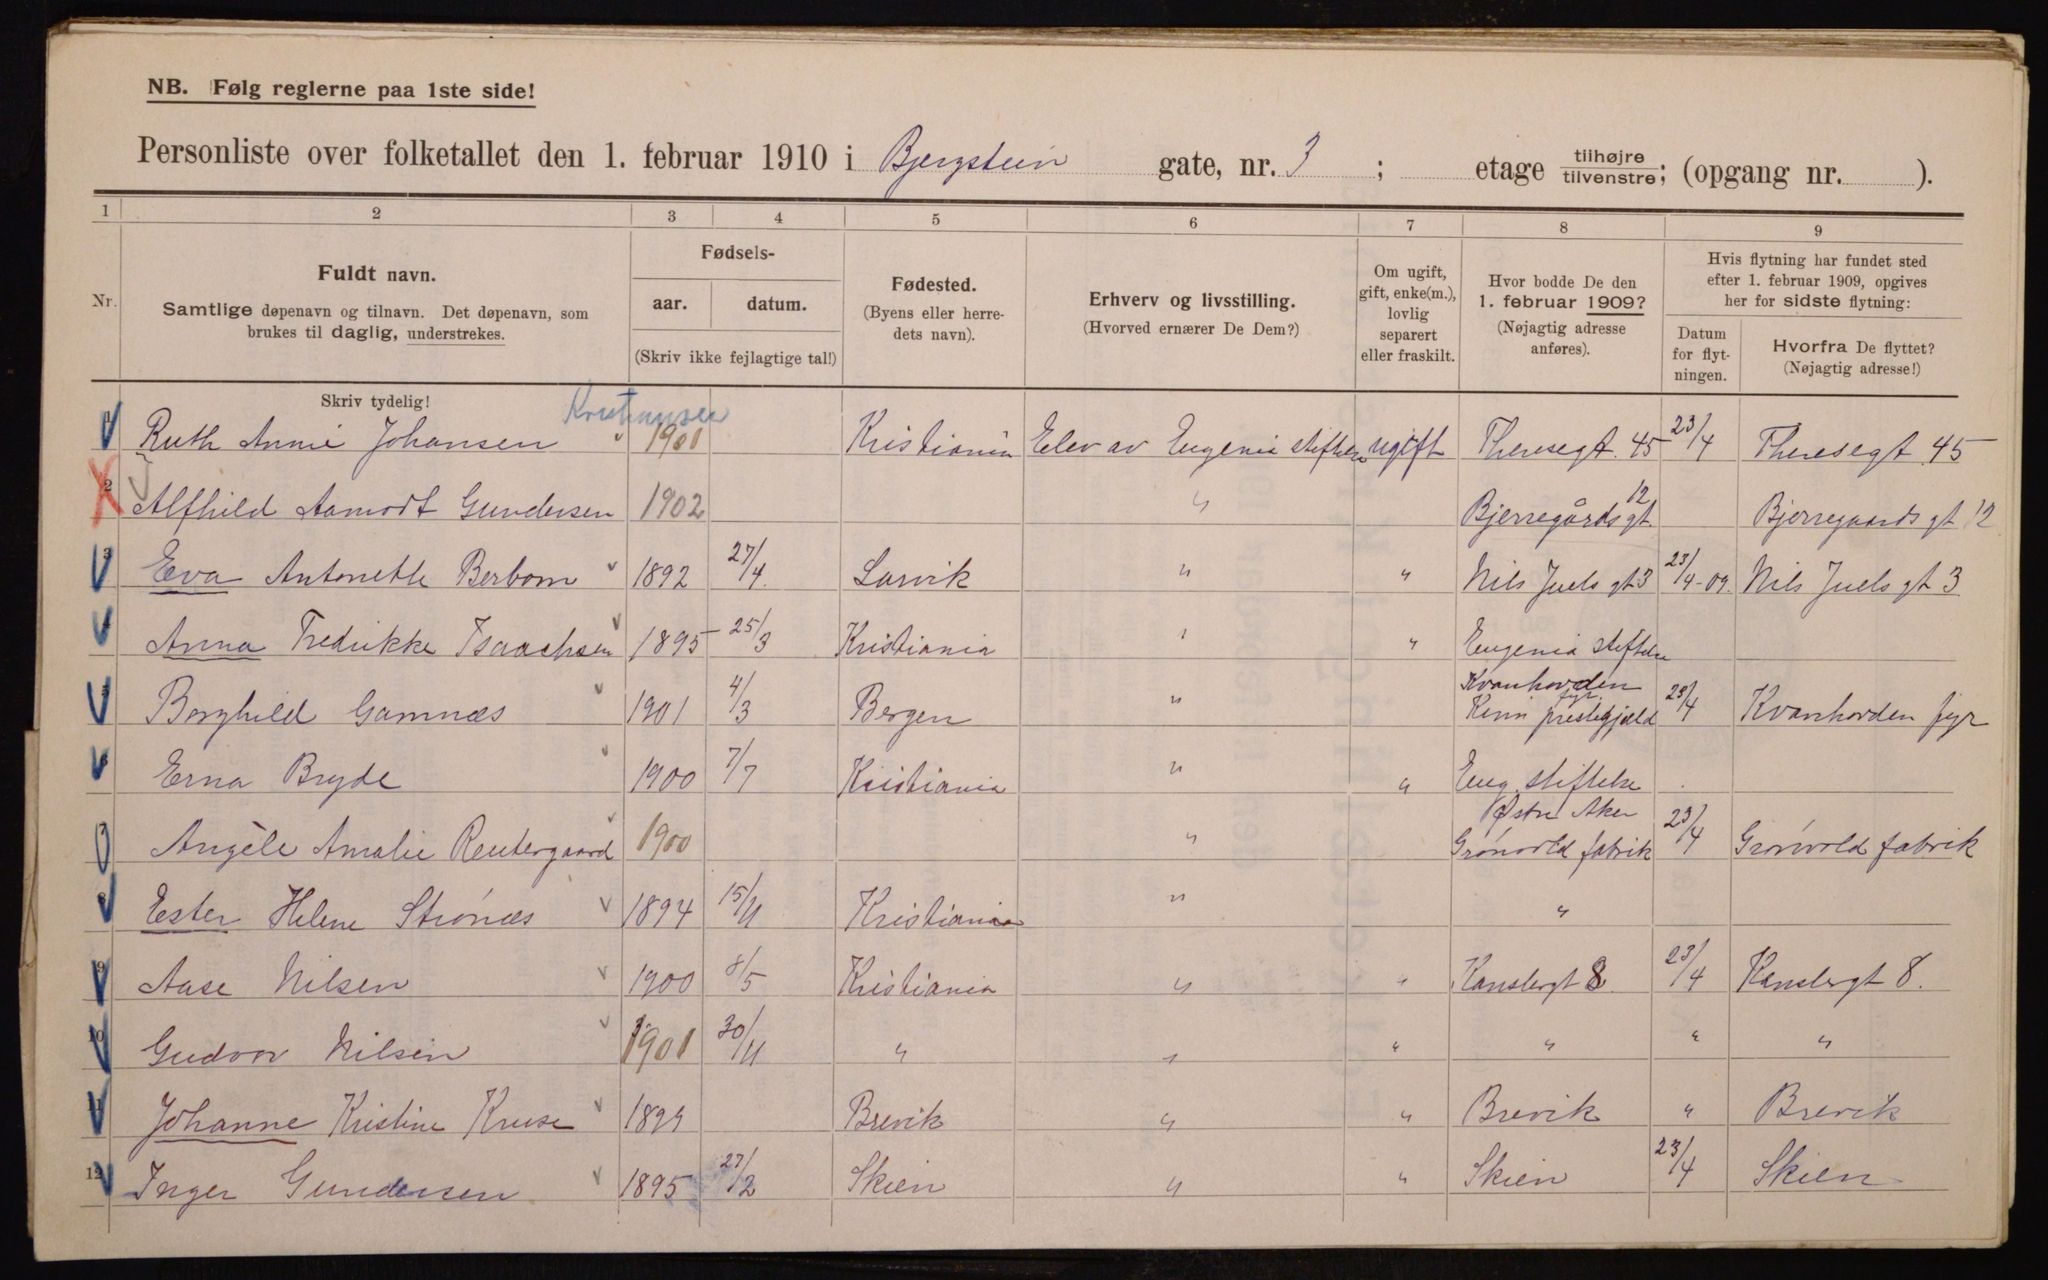 NB. Følg reglerne paa 1ste side!
Personliste over folketallet den 1. februar 1910 i Bjergstein gate, nr. 3 ; etage tilhøjre tilvenstre; (opgang nr. ).
1 2 3 4 5 6 7 8 9
Nr.
Fuldt navn.
Samtlige døpenavn og tilnavn. Det døpenavn, som
brukes til daglig, understrekes.
Skriv tydelig!
Fødsels-
aar. datum.
(Skriv ikke fejlagtige tal!)
Fødested.
(Byens eller herre-
dets navn).
Erhverv og livsstilling.
(Hvorved ernærer De Dem?)
Om ugift,
gift, enke(m.),
lovlig
separert
eller fraskilt.
Hvor bodde De den
1. februar 1909?
(Nøjagtig adresse
anføres).
Hvis flytning har fundet sted
efter 1. februar 1909, opgives
her for sidste flytning:
Datum
for flyt-
ningen.
Hvorfra De flyttet?
(Nøjagtig adresse!)
1 Ruth Annie Johansen 1901 Kristiania Elev av Eugenia stiftelse ugift Theresegt. 45 23/4 Theresegt. 45
2 Alfhild Aamodt Gundersen 1902 " Bjerregårdsgt. 12 Bjerregaardsgt 12
3 Eva Antonette Berbom 1892 27/4. Larvik " " Nils Juels gt 3 23/4-09. Nils Juels gt 3
4 Anna Fredrikke Isaachsen 1895 25/3 Kristiania " " Eugenia stiftelse
5 Borghild Gamnæs 1901 4/3 Bergen " Kvanhovden fyr Kinn prestegjæld 23/4 Kvanhovden fyr
6 Erna Bryde 1900 7/7 Kristiania " " Eug. stiftelse
7 Angèle Amalie Reutergaard 1900 " Østre Aker Grønvold fabrik 23/4 Grønvold fabrik
8 Ester Helene Strønæs 1894 15/11 Kristiania " "
9 Aase Nilsen 1900 8/5 Kristiania " " Kanslergt 8. 23/4 Kanslergt 8.
10 Gudvor Nilsen 1901 30/11 " " " " " "
11 Johanne Kristine Kruse 1899 Brevik " " Brevik " Brevik
12 Inger Gundersen 1895 27/2 Skien " " Skien 23/4 Skien